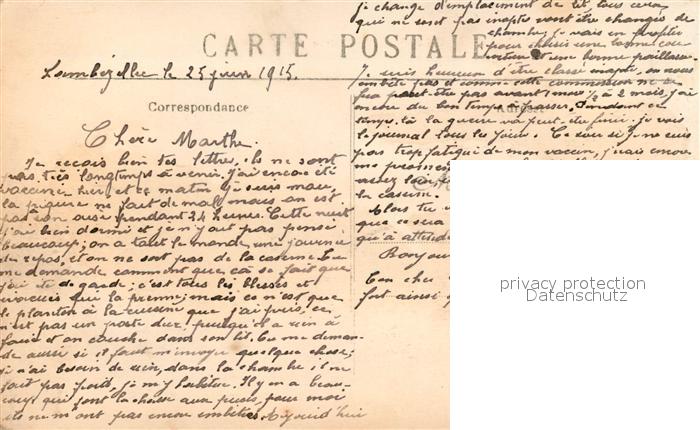 CARTE POSTALE
Lambézellec le 25 juin 1915.
Correspondance
Chère Marthe.
Je reçois bien tes lettres, ils ne sont
pas très longtemps à venir. J'ai encore été
vacciné hier et ce matin je suis mou,
la piqure ne fait de mal mais on est
pas à son aise pendant 24 heures. Cette nuit
j'ai bien dormi et je n'y ait pas pensé
beaucoup; on a tout le monde une journée
de repos, et on ne sort pas de la caserne. Tu
me demande comment que ça se fait que
j'ai été de garde; c'est tous les blessés et
qui la prenne; mais ce n'est que
le planton à la cuisine que j'ai pris, ce
n'est pas un poste dur, puisqu'il a rien à
faire et on couche dans son lit. Tu me deman-
de aussi si il faut m'envoyer quelque chose;
je n'ai besoin de rien, dans la chambre il ne
fait pas froid, je m'y habitue. Il y en a beau-
coup qui font la chasse aux puces, pour moi
ils ne m'ont pas encore embêtés. Aujourd'hui
je change d'emplacement de lit, tous ceux
qui ne sont pas inaptes vont être changés de
chambre, je vais en profiter
pour choisir une bonne cou-
verture et une bonne paillasse.
Je suis heureux d'être classé inapte, on nous
embête pas et comme cette commission ne se
fera peut-être pas avant 1 mois ½ à 2 mois, j'ai
encore du bon temps à passer. Pendant ce
temps-là la guerre va peut-être finir. Je vois
le journal tous les jours. Ce soir si je ne suis
pas trop fatigué de mon vaccin, j'irais encore
me
assez loin
la caserne.
Alors tu
que ce sera
qu'à attendre
Bonjour
Ton cher
fort ainsi
privacy protection
Datenschutz